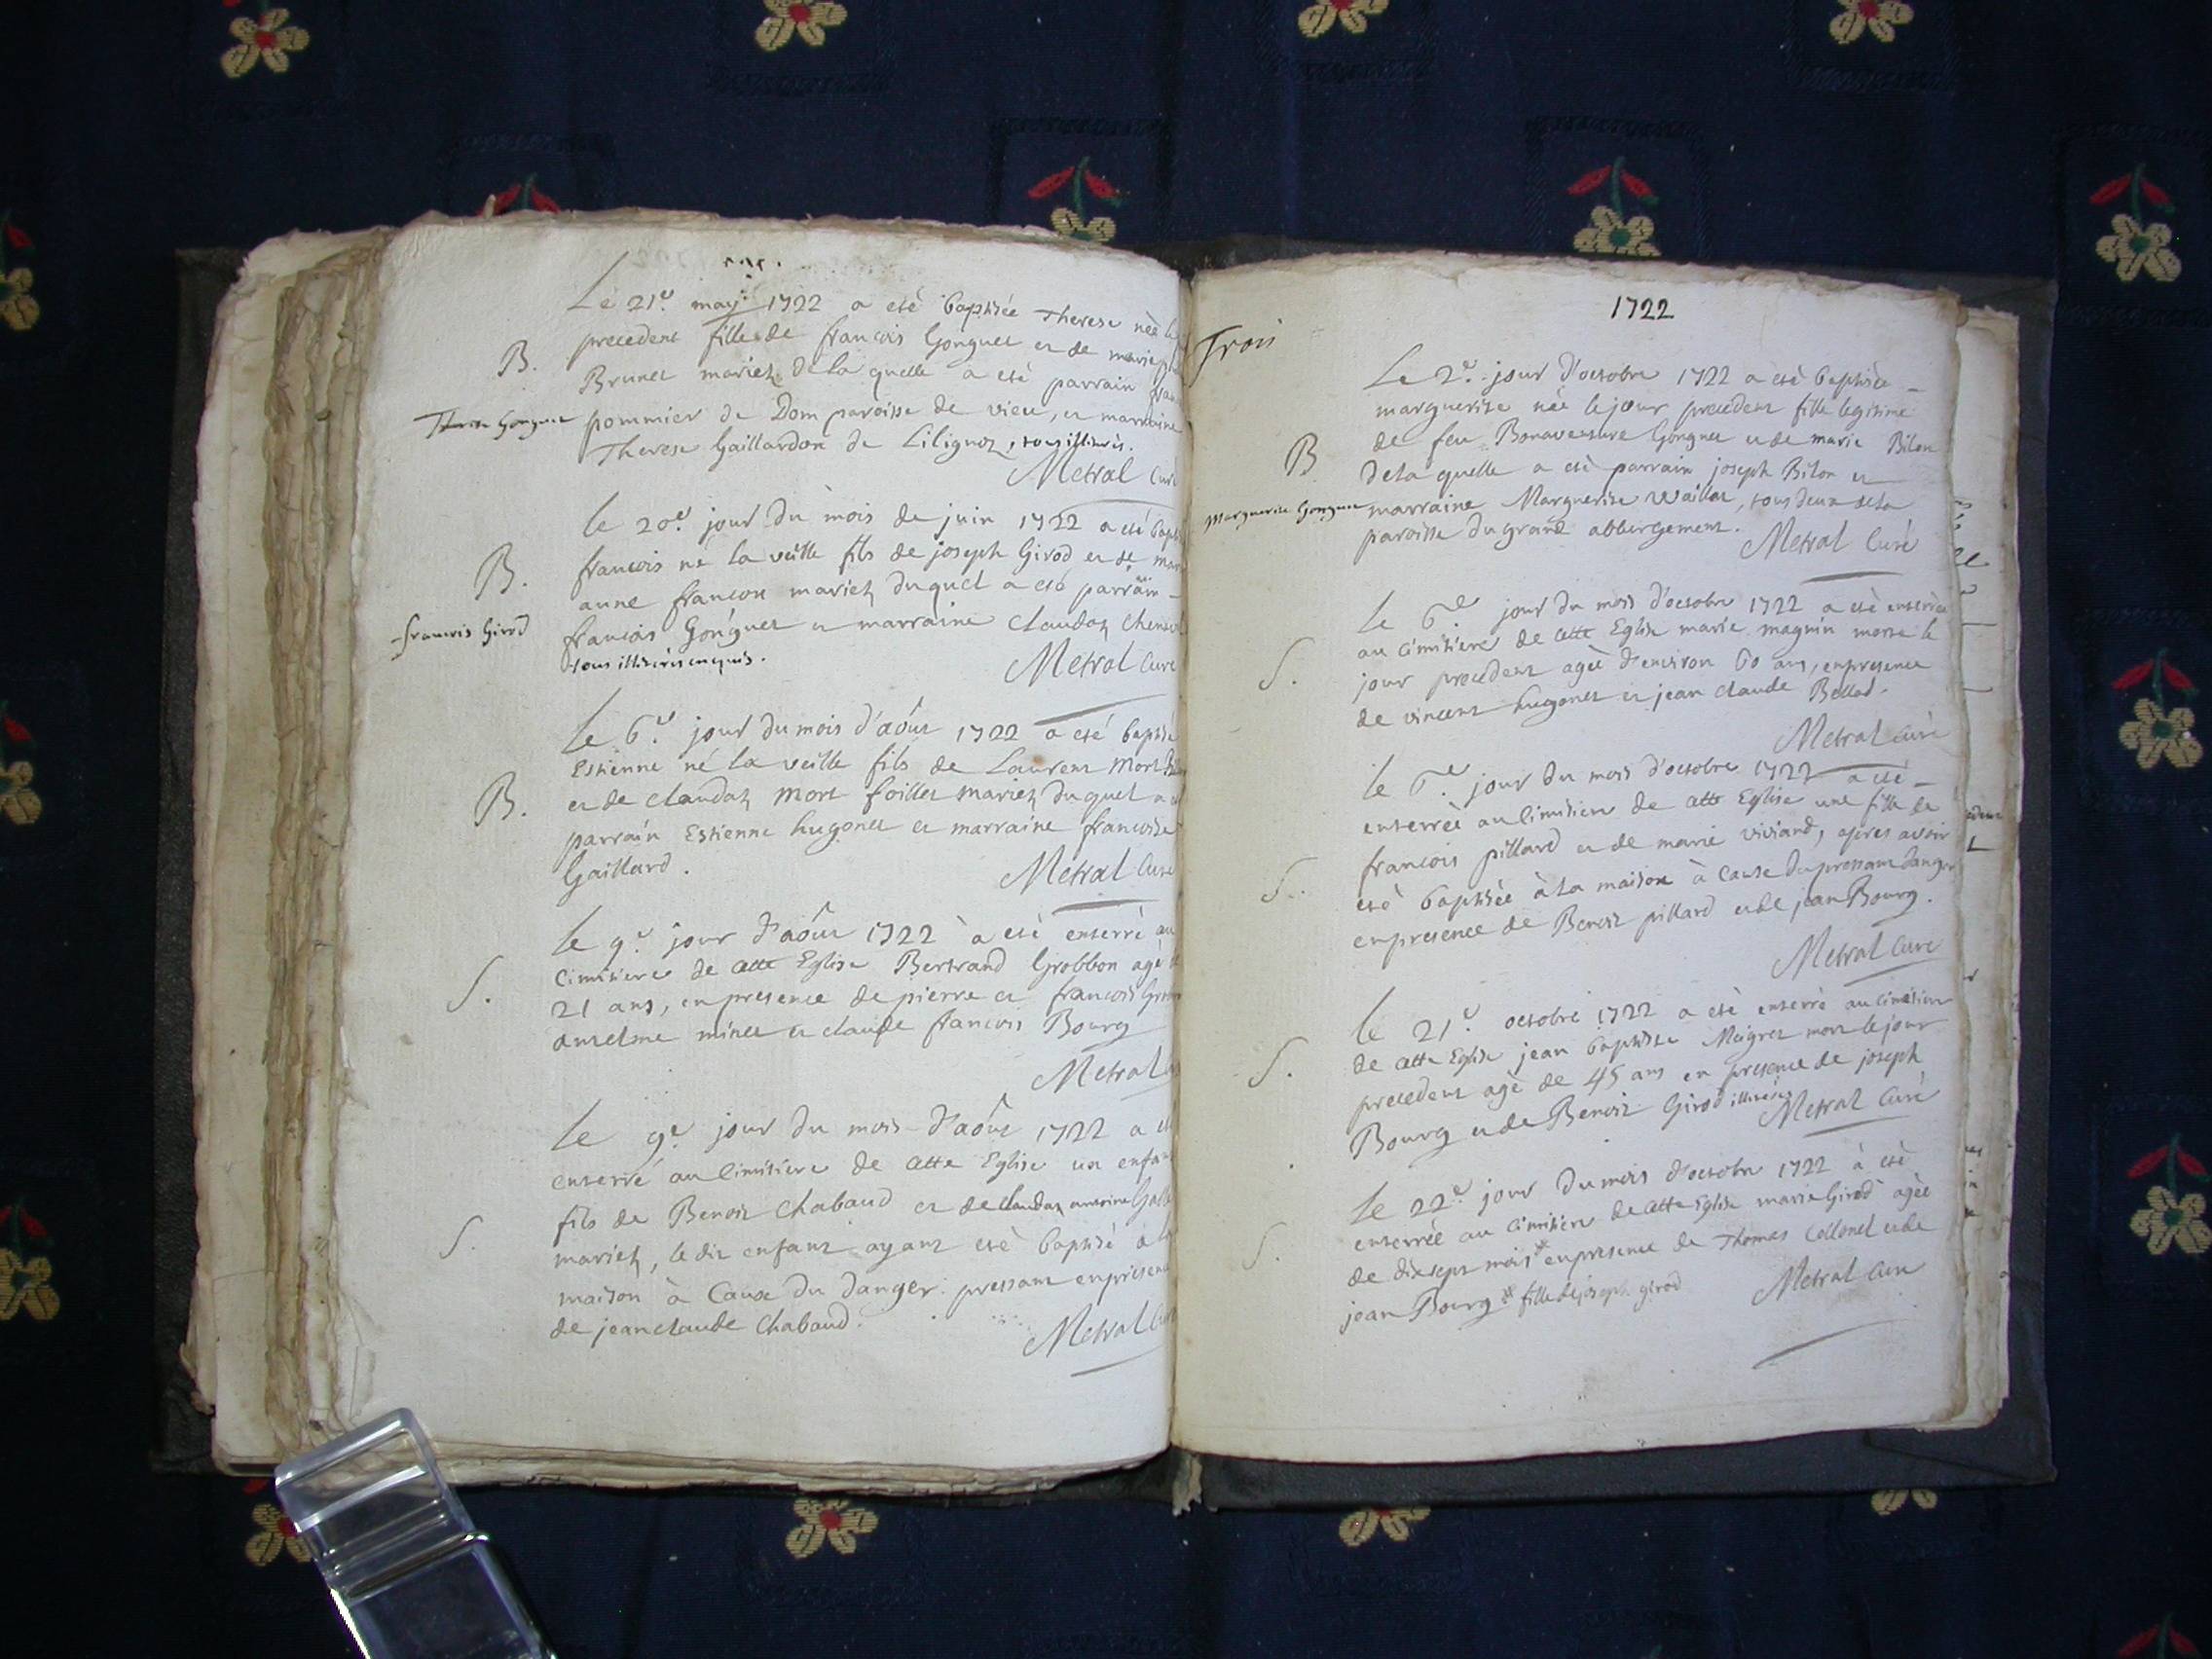 Le 21e. may 1722 a eté baptisée Therese née le
precedent fille de francois Gonguet et de marie
B.
Brunet mariez de la quelle a eté parrain
Therese Gonguet
pommier de Dom paroisse de vieu, et marraine
Therese Gaillardon de Lilignoz, tous illiterés.
Metral Curé
Le 20e. jour du mois de juin 1722 a eté bapt
francois né la veille fils de joseph Girod et de mar
B.
anne francon mariez duquel a eté parrain
francois Girod
francois Gonguet et marraine Claudaz
tous illiterés enquis.
Metral Curé
Le 6e. jour du mois d'aôut 1722 a eté baptisé
Estienne né la veille fils de Laurent Mort
B.
et de Claudaz Mort foillet mariez duquel a
parrain Estienne hugonet et marraine francoise
Gaillard.
Metral Curé
Le 9e. jour d'aôut 1722 a eté enterré au
Cimitiere de cette Eglise Bertrand Grobbon agé
S.
21 ans, en presence de pierre et francois
anselme minet et claude francois Bourg
Metral
Le 9e. jour du mois d'aôut 1722 a eté
enterré au Cimitiere de cette Eglise un enfant
fils de Benoit Chabaud et de Claudaz
S.
mariez, le dit enfant ayant eté baptisé à la
maison à Cause du danger pressant en presence
de jean claude Chabaud.
Metral Curé
1722
Trois
Le 2e. jour d'octobre 1722 a eté baptisée
marguerite née le jour precedent fille legitime
de feu Bonaventure Gonguet et de marie Bilon
B
de la quelle a eté parrain joseph Bilon et
Marguerite Gonguet
marraine Marguerite Vaillet, tous deux de la
paroisse du grand abbergement.
Metral Curé
Le 6e. jour du mois d'octobre 1722 a eté enterrée
au Cimitiere de cette Eglise marie magnin morte le
S.
jour precedent agée d'environ 60 ans, en presence
de vincent hugonet et jean claude Bellod.
Metral Curé
Le 6e. jour du mois d'octobre 1722 a eté
enterrée au Cimitiere de cette Eglise une fille de
francois pillard et de marie viviand, apres avoir
S.
eté baptisée à la maison à Cause du pressant danger
en presence de Benoit pillard et de jean Bourg.
Metral Curé
Le 21e. octobre 1722 a eté enterré au Cimitiere
de cette Eglise jean baptiste Meigret mort le jour
S.
precedent agé de 45 ans en presence de joseph
Bourg et de Benoit Girod illiterés
Metral Curé
Le 22e. jour du mois d'octobre 1722 a eté
enterrée au Cimitiere de cette Eglise marie Girod agée
S.
de dix sept mois * en presence de Thomas Collonel et de
jean Bourg * fille de joseph girod
Metral Curé